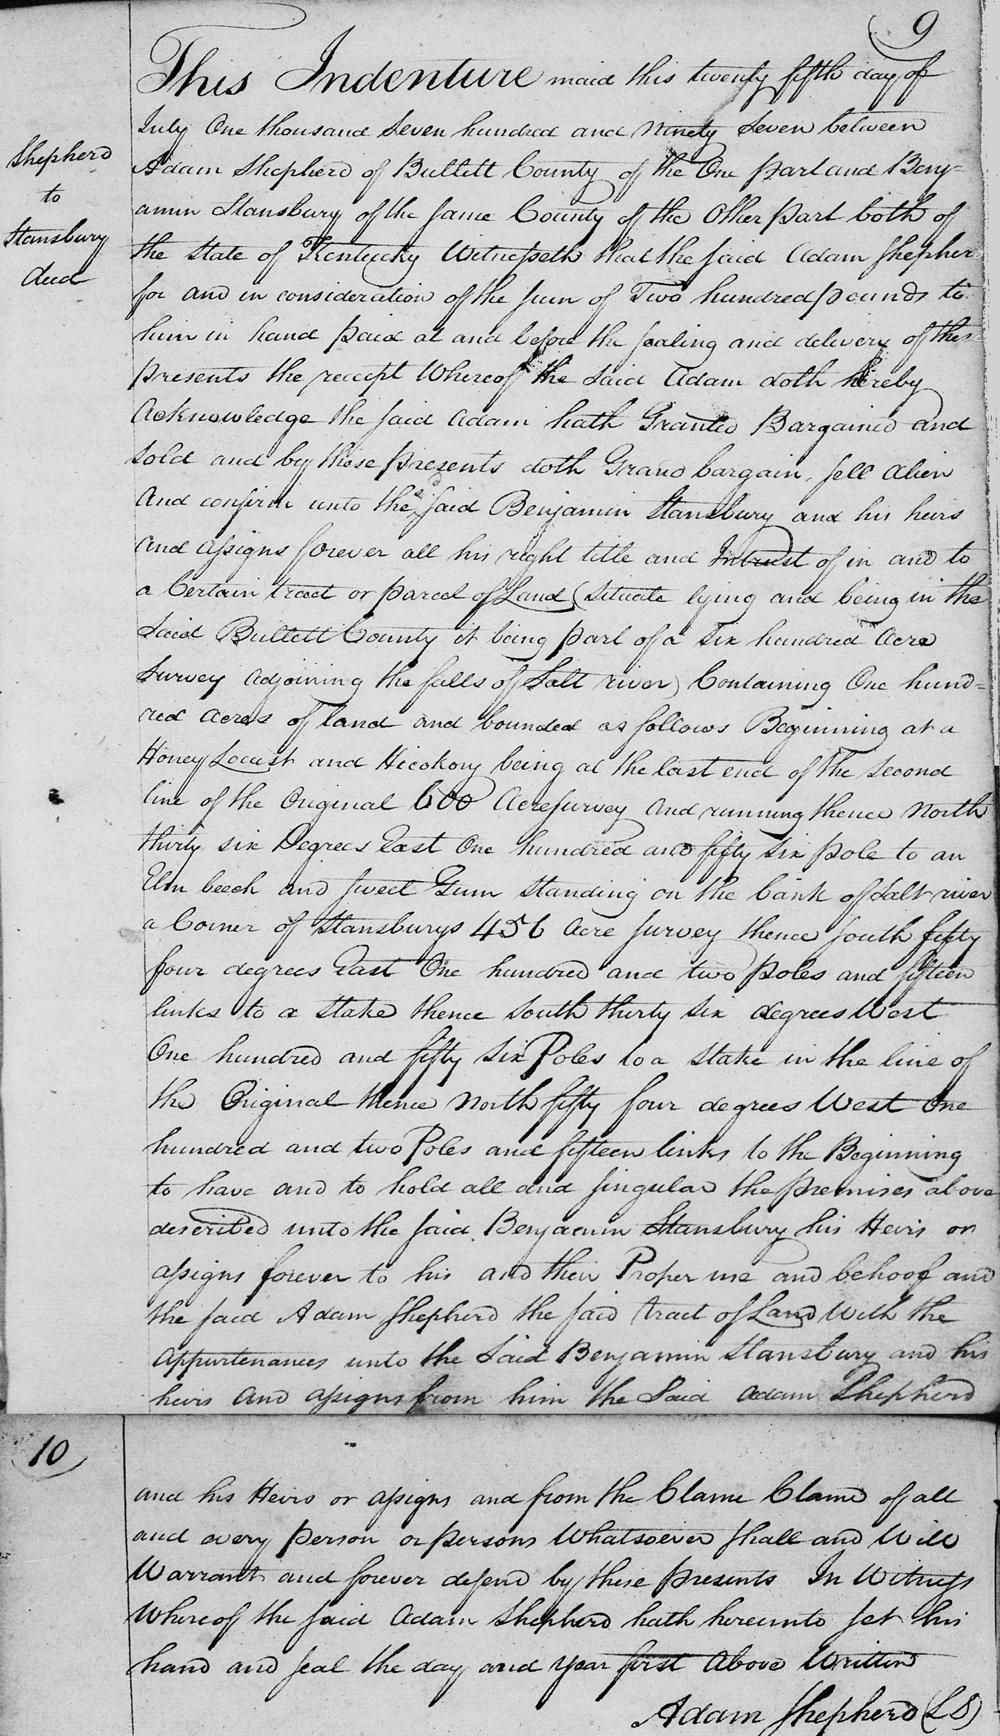 9
This Indenture maid this twenty fifth day of
July One thousand Seven hundred and ninety Seven between
Shepherd
to
Stansbury
deed
Adam Shepherd of Bullett County of the One part and Benj-
amin Stansbury of the Same County of the Other part both of
the State of Kentucky Witnesseth that the said Adam Shepher
for and in consideration of the sum of Two hundred pounds to
him in hand paid at and before the sealing and delivery of thes
presents the receipt Whereof the Said Adam doth hereby
Acknowledge the said Adam hath Granted Bargained and
Sold and by these presents doth Grand bargain, sell Alien
And confirm unto the said Benjamin Stansbury and his heirs
and assigns forever all his right title and Intrust of in and to
a Certain tract or parcel of Land (Situate lying and being in the
Said Bullett County it being part of a Six hundred Acre
Survey adjoining the falls of Salt river) Containing One hund=
red Acres of land and bounded as follows Beginning at a
Honey Locust and Hickory being at the last end of the Second
line of the Original 600 Acre survey and running thence North
thirty six Degrees East One hundred and fifty six pole to an
Elm beech and sweet Gum standing on the bank of Salt river
a Corner of Stansburys 456 Acre survey thence south fifty
four degrees East One hundred and two poles and fifteen
links to a stake thence South thirty six degrees West
One hundred and fifty six Poles to a stake in the line of
the Original thence North fifty four degrees West One
hundred and two Poles and fifteen links to the Beginning
to have and to hold all and singular the premises above
described unto the said Benjamin Stansbury his Heirs or
assigns forever to his and their Proper use and behoof and
the said Adam Shepherd the said tract of Land With the
Appurtenances unto the Said Benjamin Stansbury and his
heirs and assigns from him the Said Adam Shepherd
10
and his Heirs or assigns and from the Clame Clame of all
and every person or persons Whatsoever shall and Will
Warrant and forever defend by these presents In Witness
Whereof the said Adam Shepherd hath hereunto set his
hand and seal the day and year first Above Written
Adam Shepherd (LS)